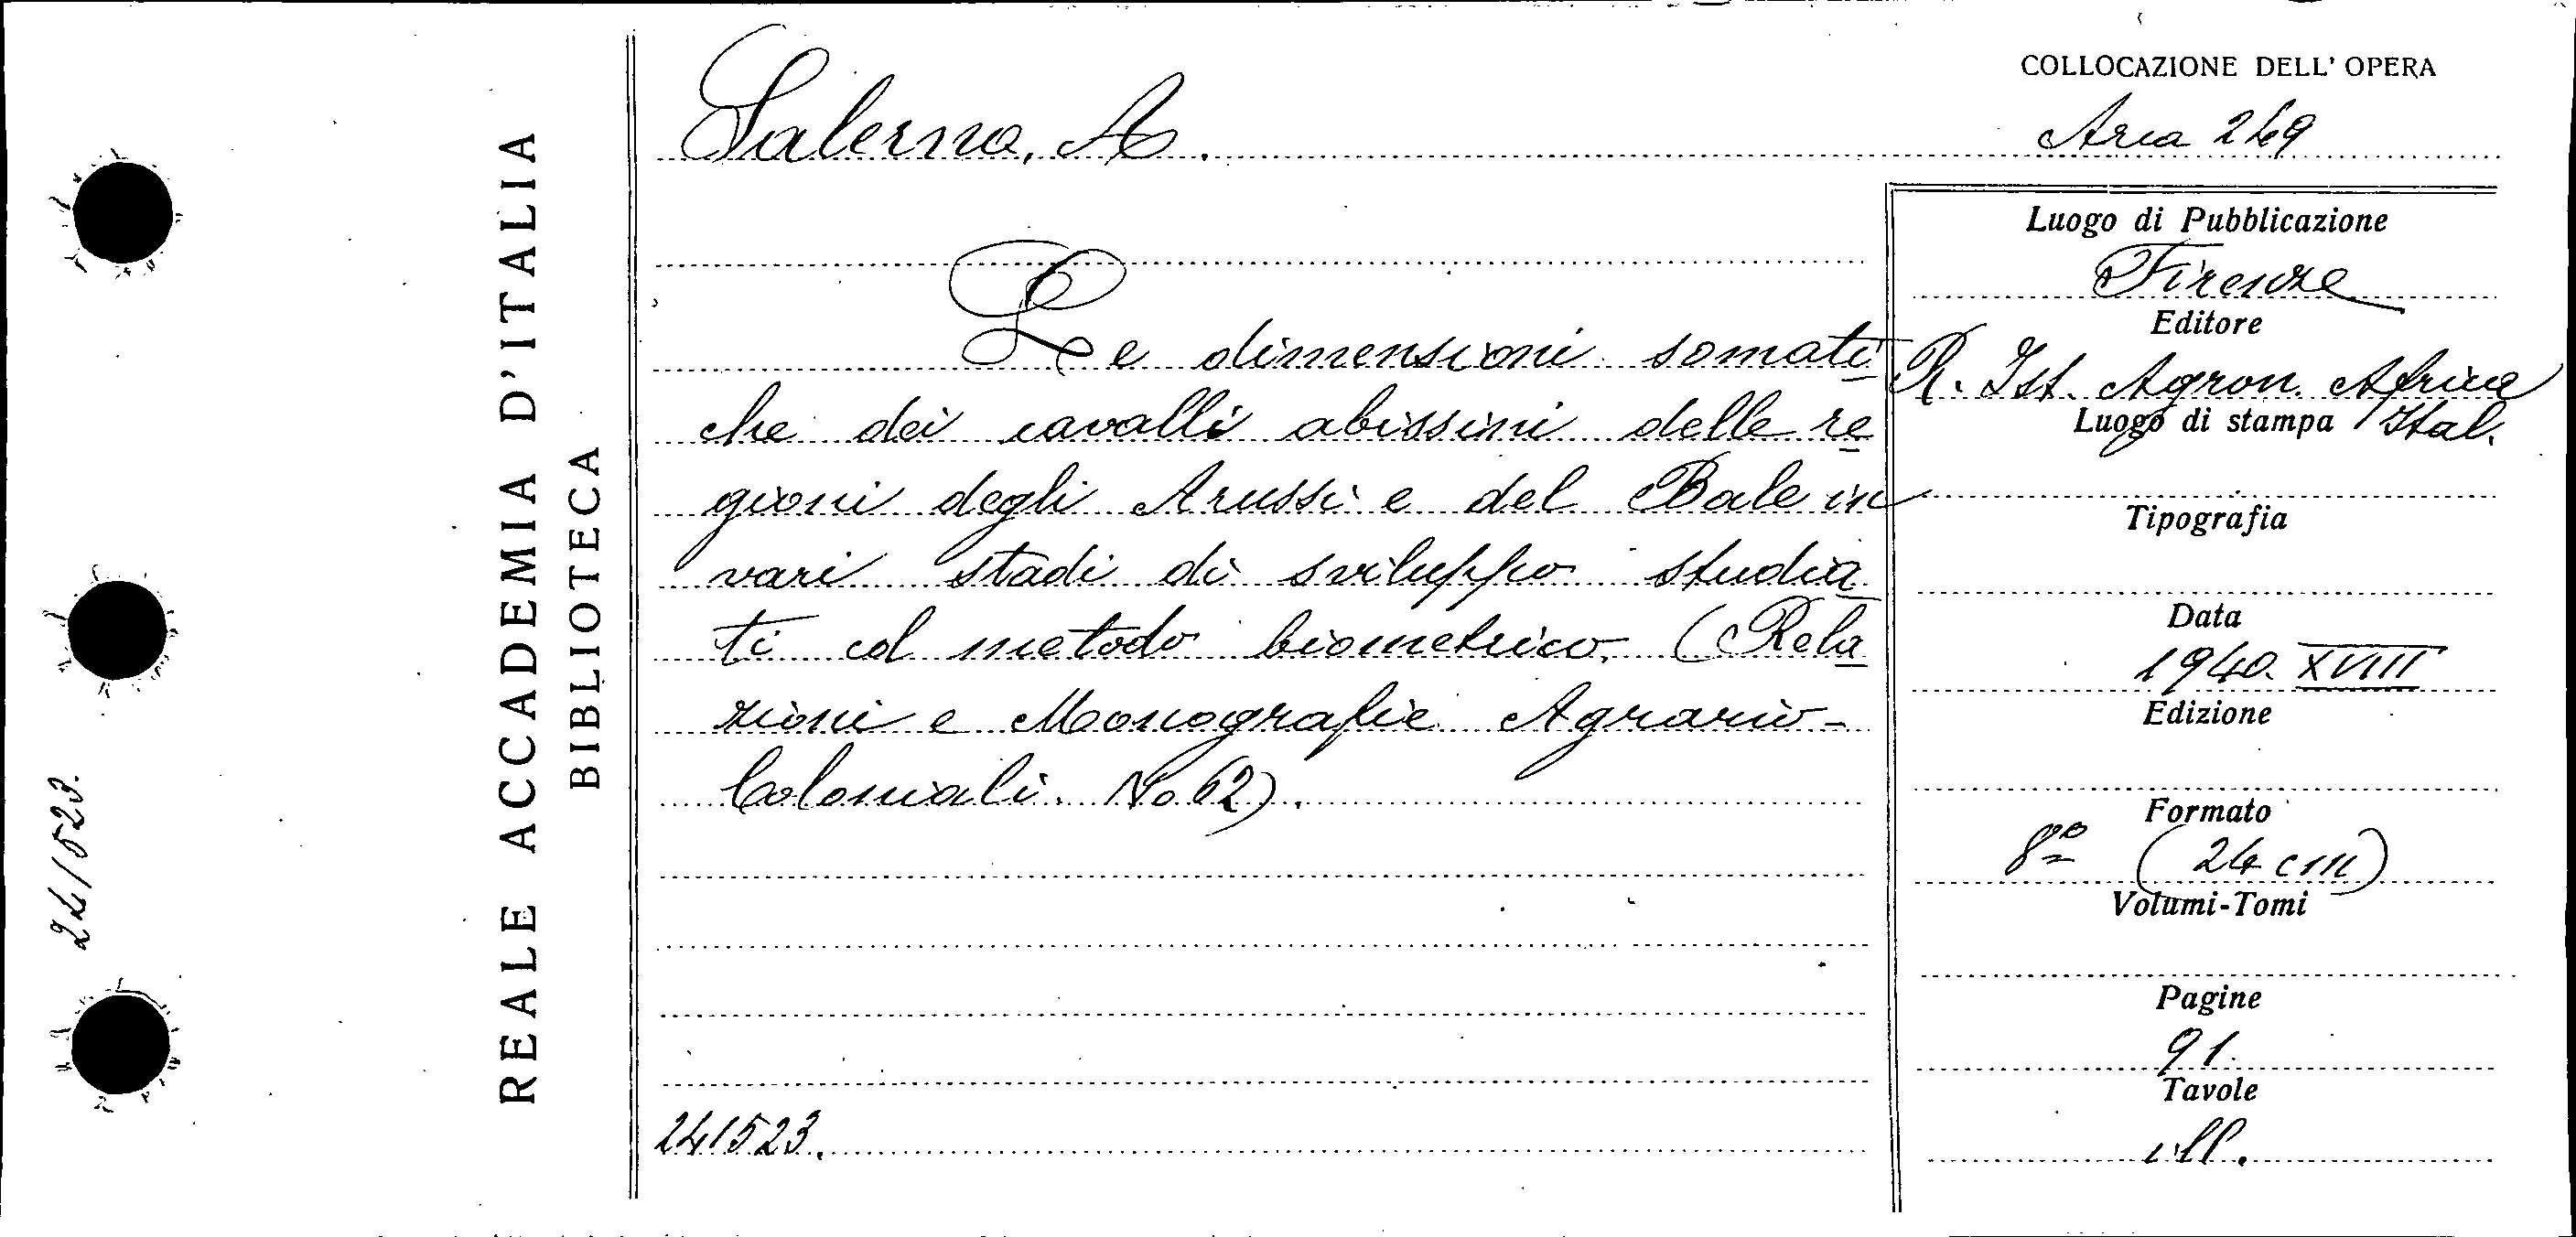 241523.
REALE ACCADEMIA D'ITALIA
BIBLIOTECA
Salerno, A.
Le dimensioni somati
che dei cavalli abissini delle re
gioni degli Arussi e del Bale in
vari stadi di sviluppo studia
ti col metodo biometrico. (Rela
zioni e Monografie Agrario-
Coloniali. No 62).
241523.
COLLOCAZIONE DELL' OPERA
Area 249
Luogo di Pubblicazione
Firenze
Editore
R. Ist. Agron. Africa
Ital.
Luogo di stampa
Tipografia
Data
1940. XVIII
Edizione
Formato
8º (24 cm)
Volumi-Tomi
Pagine
91.
Tavole
ill.